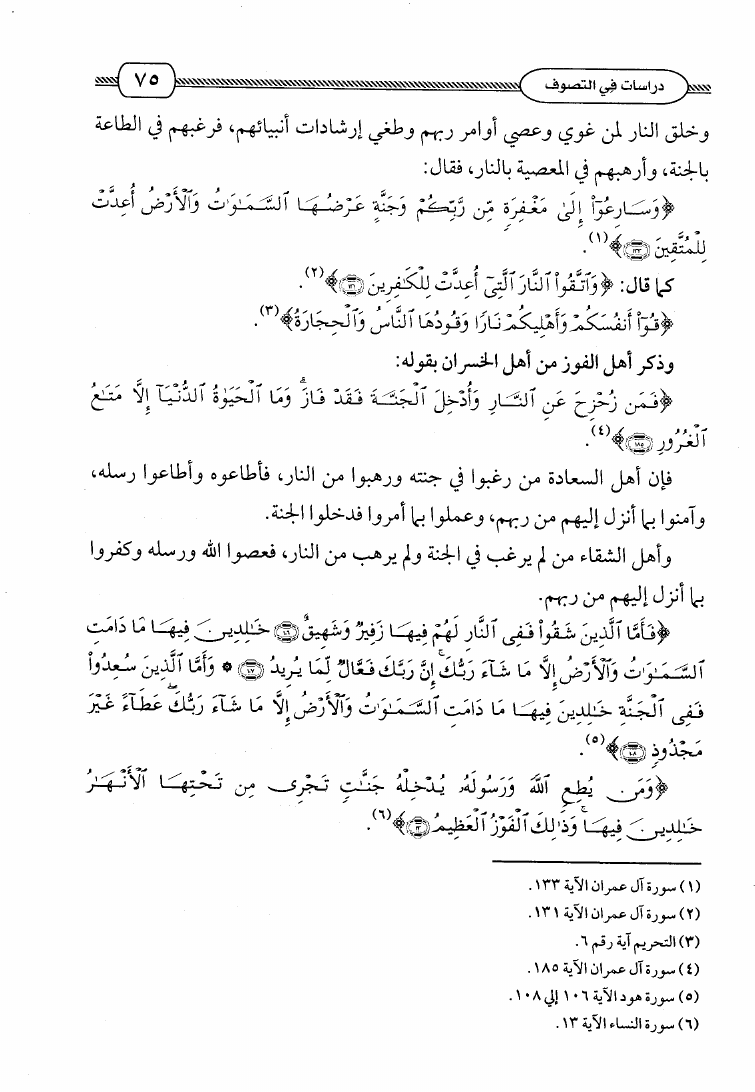 دراسات في التصوف
٧٥
وخلق النار لمن غوي وعصي أوامر ربهم وطغي إرشادات أنبيائهم، فرغبهم في الطاعة
بالجنة، وأرهبهم في المعصية بالنار، فقال:
﴿وَسَارِعُوٓا۟ إِلَىٰ مَغْفِرَةٍ مِّن رَّبِّكُمْ وَجَنَّةٍ عَرْضُهَا ٱلسَّمَـٰوَٰتُ وَٱلْأَرْضُ أُعِدَّتْ
لِلْمُتَّقِينَ ١٣٣﴾(١).
كما قال: ﴿وَٱتَّقُوا۟ ٱلنَّارَ ٱلَّتِىٓ أُعِدَّتْ لِلْكَـٰفِرِينَ ١٣١﴾(٢).
﴿قُوٓا۟ أَنفُسَكُمْ وَأَهْلِيكُمْ نَارًا وَقُودُهَا ٱلنَّاسُ وَٱلْحِجَارَةُ﴾(٣).
وذكر أهل الفوز من أهل الخسران بقوله:
﴿فَمَن زُحْزِحَ عَنِ ٱلنَّارِ وَأُدْخِلَ ٱلْجَنَّةَ فَقَدْ فَازَ ۗ وَمَا ٱلْحَيَوٰةُ ٱلدُّنْيَآ إِلَّا مَتَـٰعُ
ٱلْغُرُورِ ١٨٥﴾(٤).
فإن أهل السعادة من رغبوا في جنته ورهبوا من النار، فأطاعوه وأطاعوا رسله،
وآمنوا بما أنزل إليهم من ربهم، وعملوا بما أمروا فدخلوا الجنة.
وأهل الشقاء من لم يرغب في الجنة ولم يرهب من النار، فعصوا الله ورسله وكفروا
بما أنزل إليهم من ربهم.
﴿فَأَمَّا ٱلَّذِينَ شَقُوا۟ فَفِى ٱلنَّارِ لَهُمْ فِيهَا زَفِيرٌ وَشَهِيقٌ ١٠٦ خَـٰلِدِينَ فِيهَا مَا دَامَتِ
ٱلسَّمَـٰوَٰتُ وَٱلْأَرْضُ إِلَّا مَا شَآءَ رَبُّكَ ۚ إِنَّ رَبَّكَ فَعَّالٌ لِّمَا يُرِيدُ ١٠٧ * وَأَمَّا ٱلَّذِينَ سُعِدُوا۟
فَفِى ٱلْجَنَّةِ خَـٰلِدِينَ فِيهَا مَا دَامَتِ ٱلسَّمَـٰوَٰتُ وَٱلْأَرْضُ إِلَّا مَا شَآءَ رَبُّكَ ۖ عَطَآءً غَيْرَ
مَجْذُوذٍ ١٠٨﴾(٥).
﴿وَمَن يُطِعِ ٱللَّهَ وَرَسُولَهُۥ يُدْخِلْهُ جَنَّـٰتٍ تَجْرِى مِن تَحْتِهَا ٱلْأَنْهَـٰرُ
خَـٰلِدِينَ فِيهَا ۚ وَذَٰلِكَ ٱلْفَوْزُ ٱلْعَظِيمُ ١٣﴾(٦).
(١) سورة آل عمران الآية ١٣٣.
(٢) سورة آل عمران الآية ١٣١.
(٣) التحريم آية رقم ٦.
(٤) سورة آل عمران الآية ١٨٥.
(٥) سورة هود الآية ١٠٦ إلي ١٠٨.
(٦) سورة النساء الآية ١٣.